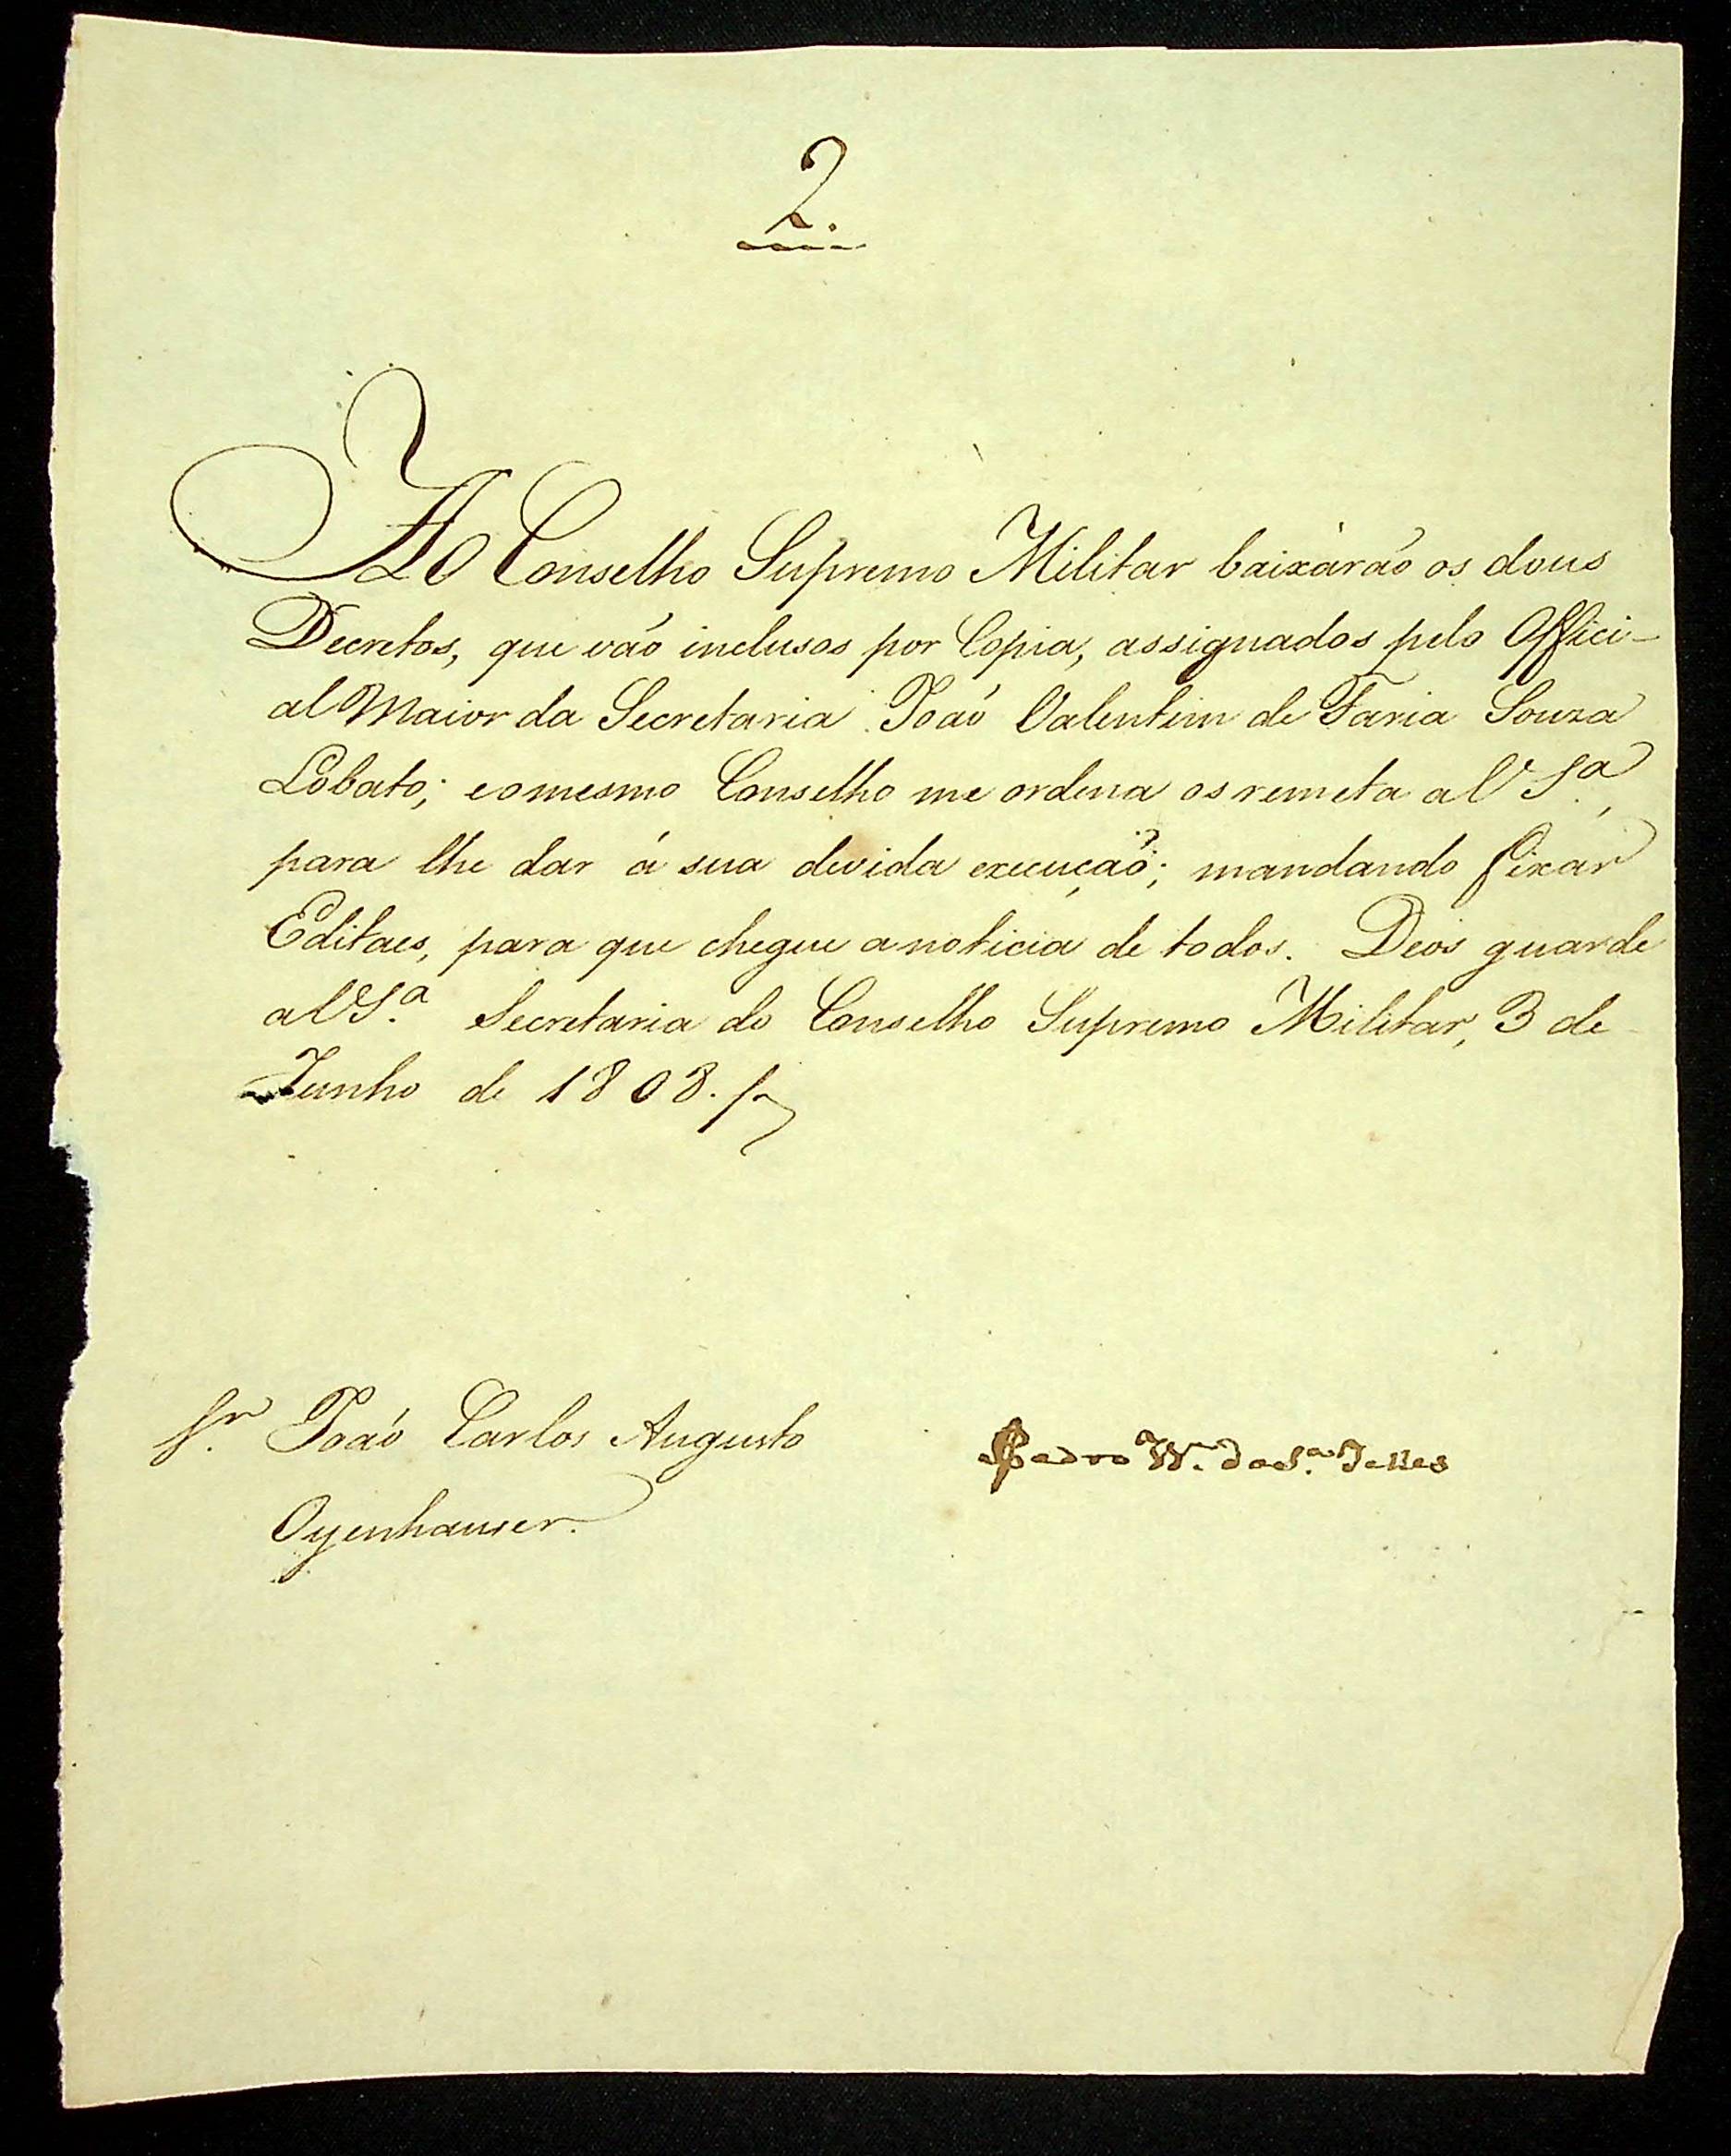 2.
Ao Conselho Supremo Militar baixárão os dous
Decretos, que vão inclusos por Copia, assignados pelo Offici-
al Maior da Secretaria João Valentim de Faria Souza
Lobato; e o mesmo Conselho me ordena os remeta a V S.ª,
para lhe dar á sua devida execução; mandando fixár
Editaes, para que chegue a noticia de todos. Deos guarde
a V S.ª Secretaria do Conselho Supremo Militar, 3 de
Junho de 1808.
Sr. João Carlos Augusto
Oyenhauser.
Pedro Vr.ª da S.ª Telles